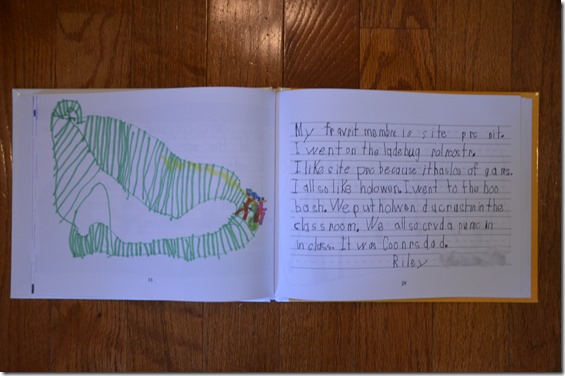 My fravrit mambre is site prc nit.
I went on the ladebug rolrcostr.
I like site prc because it has los of gams.
I all so like holowen. I went to the boo
bash. We put holwen ducrashn in the
classroom. We all so crvd a pumc in
in class. It was Coonrs dad.
Riley